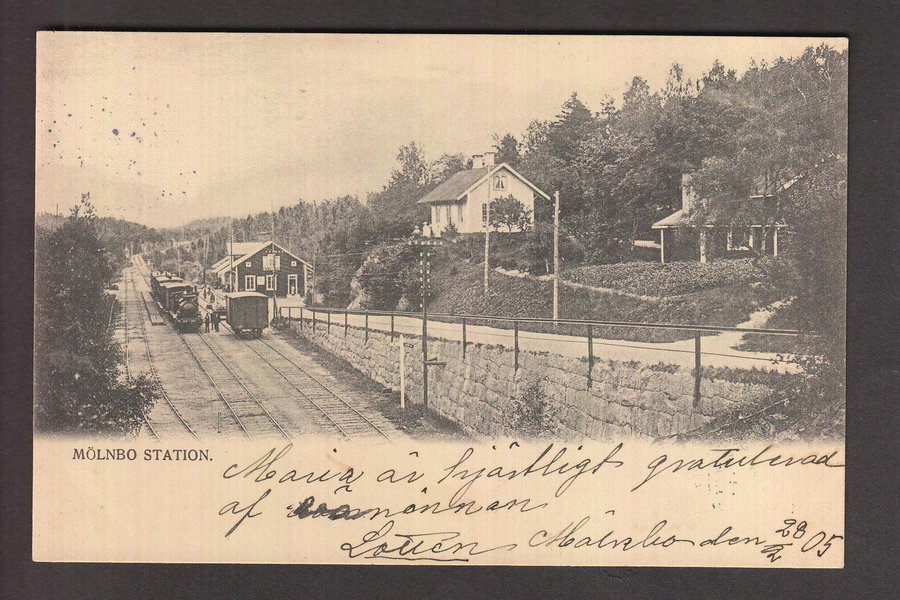 MÖLNBO STATION.
Maria är hjärtligt gratulerad
af vännönnan
Lotten Mölnbo den 28/2 05